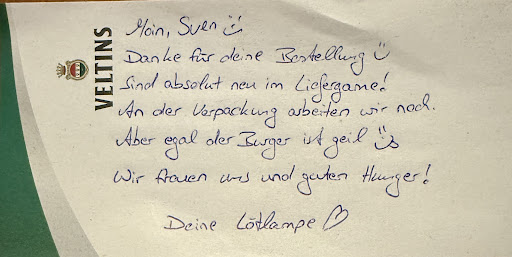 VELTINS
Moin, Sven
Danke für deine Bestellung
Sind absolut neu im Liefergame!
An der Verpackung arbeiten wir noch.
Aber egal der Burger ist geil
Wir frauen uns und guten Hunger!
Deine Lötlampe